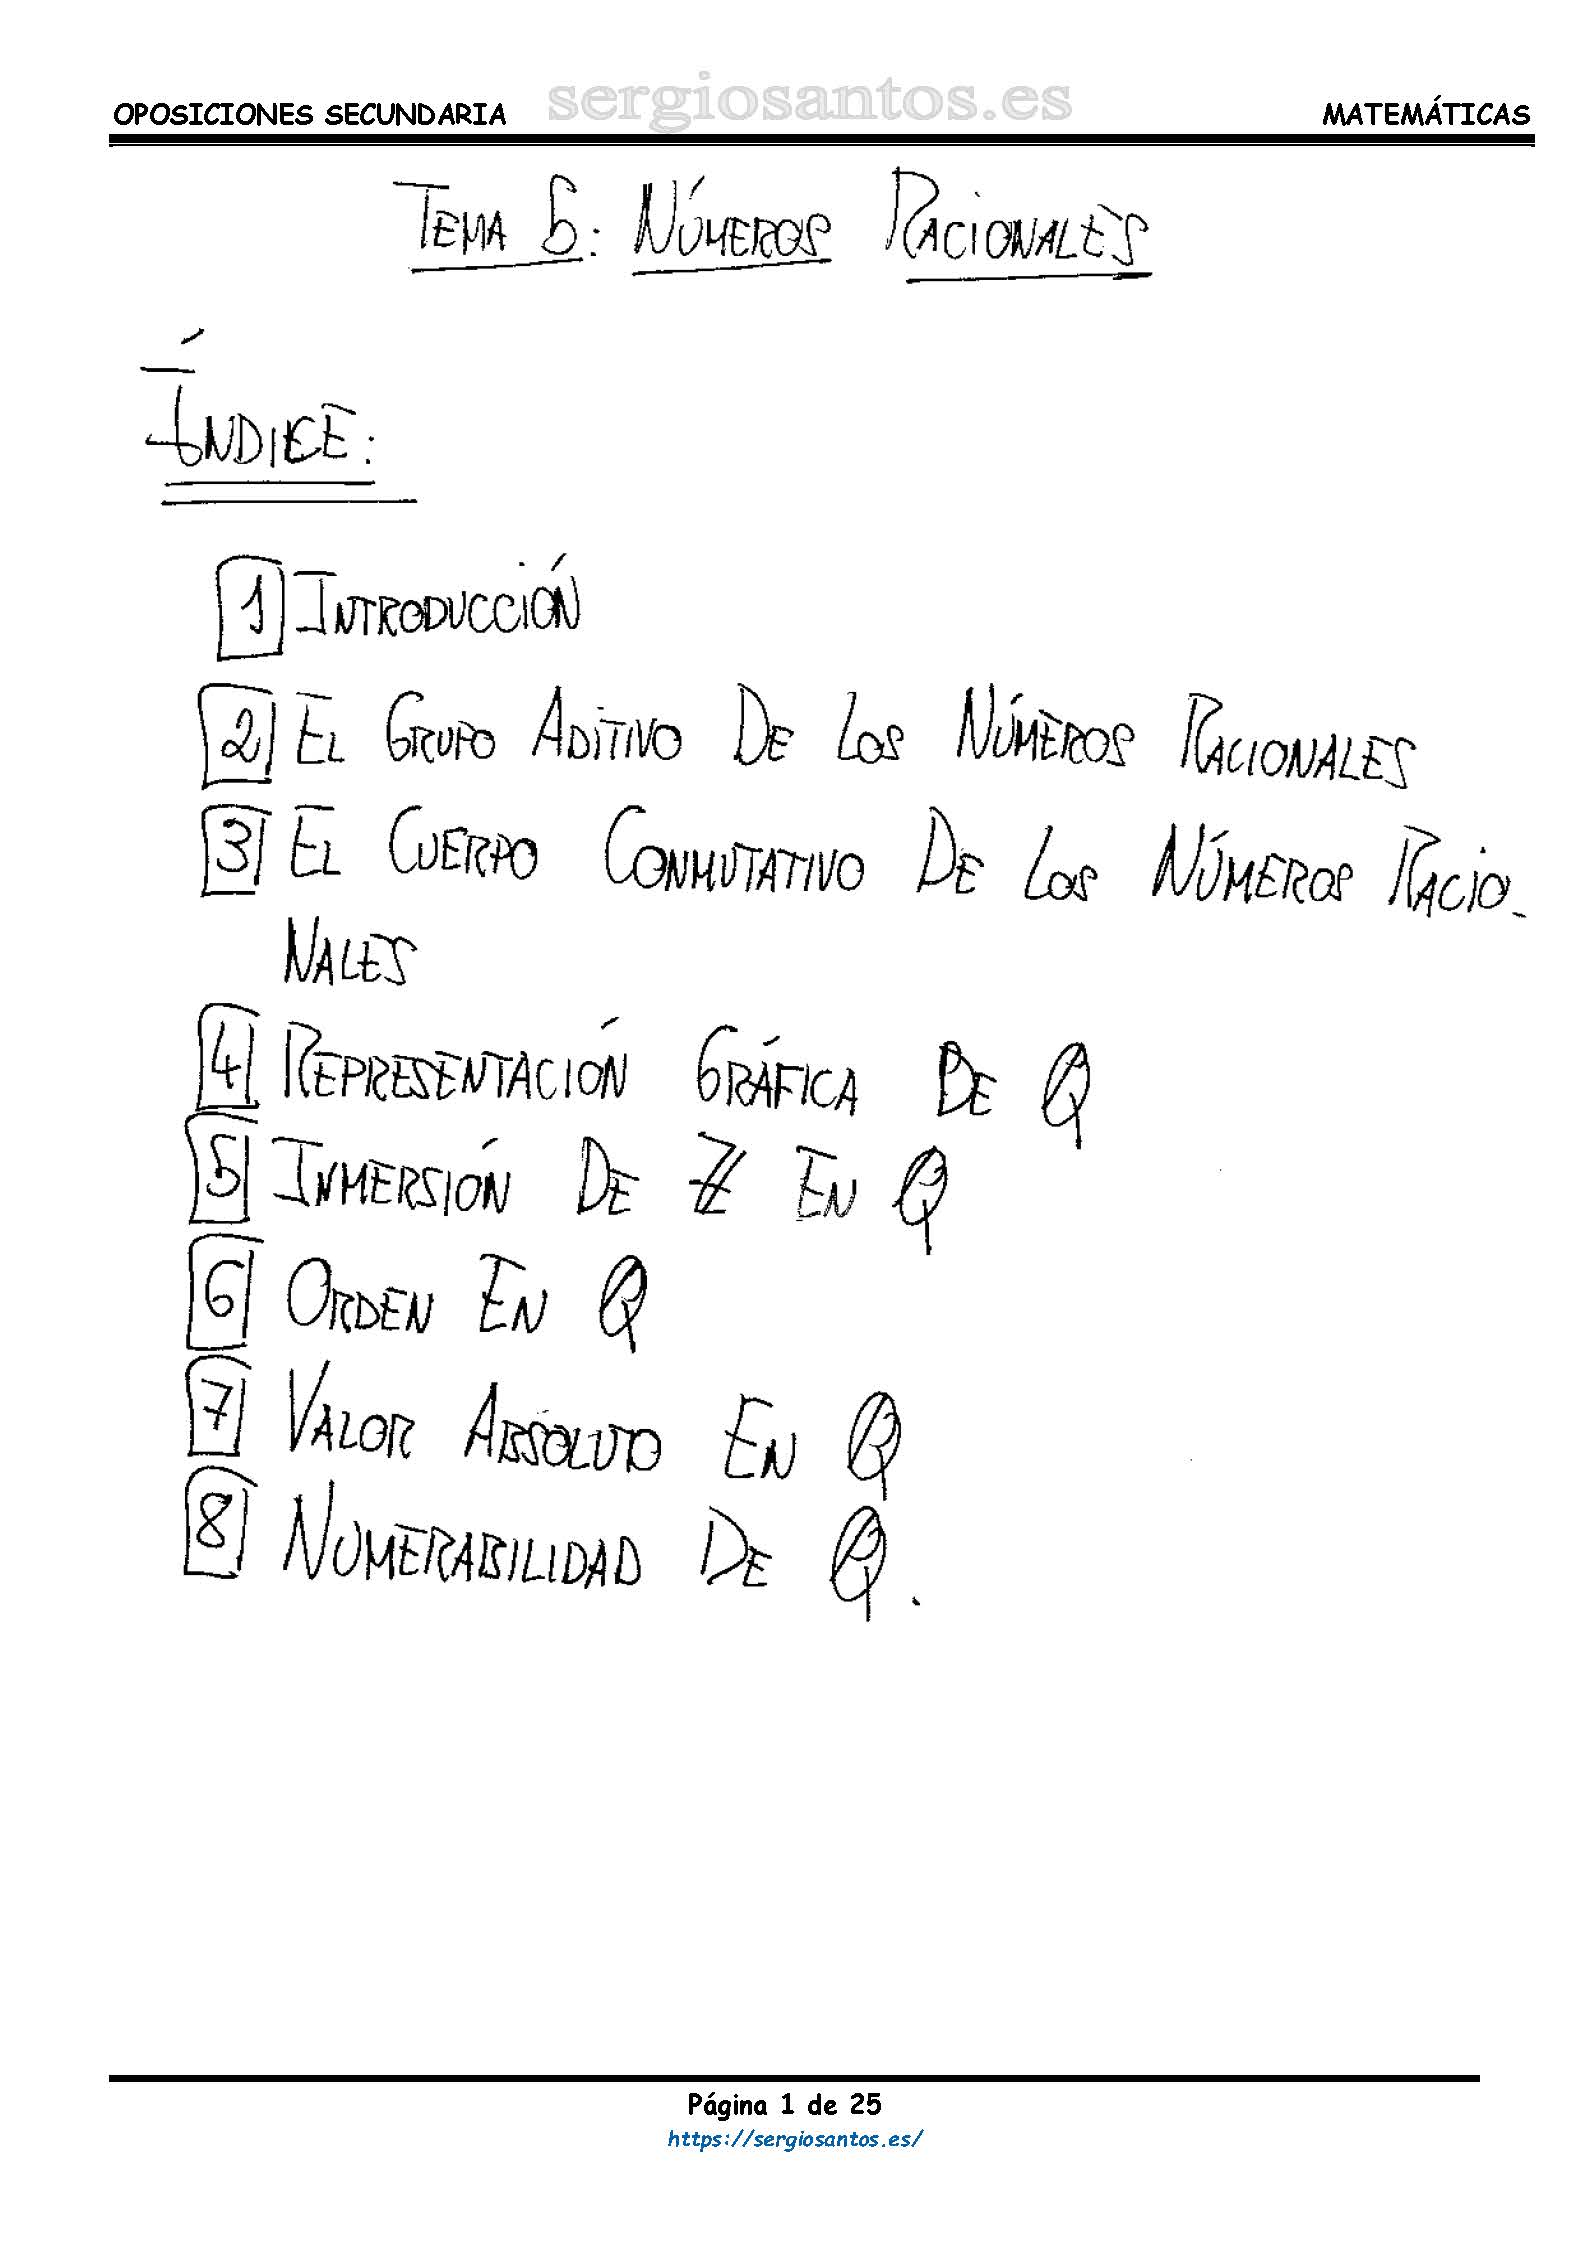 OPOSICIONES SECUNDARIA sergiosantos.es MATEMÁTICAS
TEMA 5: NÚMEROS RACIONALES
ÍNDICE:
1 INTRODUCCIÓN
2 EL GRUPO ADITIVO DE LOS NÚMEROS RACIONALES
3 EL CUERPO CONMUTATIVO DE LOS NÚMEROS RACIO-
NALES
4 REPRESENTACIÓN GRÁFICA DE ℚ
5 INMERSIÓN DE ℤ EN ℚ
6 ORDEN EN ℚ
7 VALOR ABSOLUTO EN ℚ
8 NUMERABILIDAD DE ℚ.
Página 1 de 25
https://sergiosantos.es/